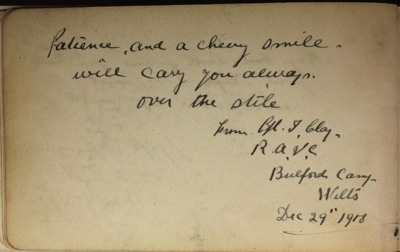 Patience, and a cheery smile.
will cary you always.
over the stile
From Cpl. F. Clay.
R.A.V.C
Bulford Camp
Wilts
Dec 29" 1918